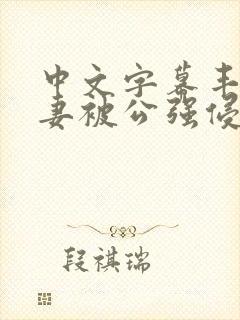 中文字幕丰
妻被公强侵
段祺瑞